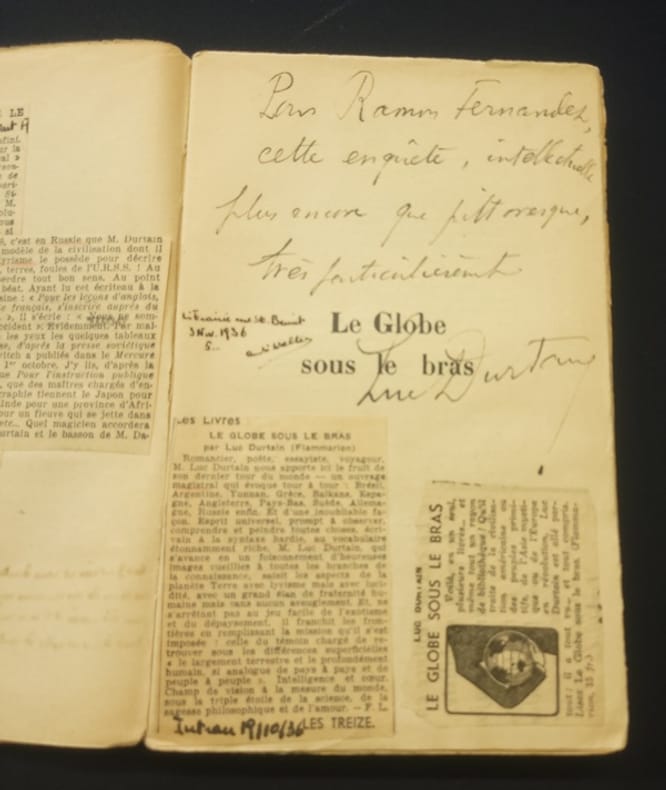 LE
M.
si
, c'est en Russie que M. Durtain
modèle de la civilisation dont il
lyrisme le possède pour décrire
, terres, foules de l'U.R.S.S. ! Au
perdre tout bon sens. Au point
béat. Ayant lu cet écriteau à la
: « Pour les leçons d'anglais,
français, s'inscrire auprès du
», il s'écrie : « Nous ne som-
ccident ». Evidemment. Par mal-
les yeux les quelques tableaux
se, d'après la presse soviétique
vitch a publiés dans le Mercure
1er octobre. J'y lis, d'après la
ue Pour l'instruction publique
, que des maîtres chargés d'en-
graphie tiennent le Japon pour
Inde pour une province d'Afri-
our un fleuve qui se jette dans
etc... Quel magicien accordera
urtain et le basson de M. Da-
Pour Ramon Fernandez,
cette enquête, intellectuelle
plus encore que pittoresque,
très particulièrement
Librairie rue St. Benoit
3 Nov. 1936
Le Globe
sous le bras
Luc Durtain
Les Livres
LE GLOBE SOUS LE BRAS
par Luc Durtain (Flammarion)
Romancier, poète, essayiste, voyageur,
M. Luc Durtain nous apporte ici le fruit de
son dernier tour du monde — un ouvrage
magistral qui évoque tour à tour : Brésil,
Argentine, Yunnan, Grèce, Balkans, Espa-
gne, Angleterre, Pays-Bas, Suède, Allema-
gne, Russie enfin. Et d'une inoubliable fa-
çon. Esprit universel, prompt à observer,
comprendre et peindre toutes choses, écri-
vain à la syntaxe hardie, au vocabulaire
étonnamment riche, M. Luc Durtain, qui
s'avance en un foisonnement d'heureuses
images cueillies à toutes les branches de
la connaissance, saisit les aspects de la
planète Terre avec lyrisme mais avec luci-
dité, avec un grand élan de fraternité hu-
maine mais sans aucun aveuglement. Et, ne
s'arrêtant pas au jeu facile de l'exotisme
et du dépaysement, il franchit les fron-
tières en remplissant la mission qu'il s'est
imposée : celle du témoin chargé de re-
trouver sous les différences superficielles
« le largement terrestre et le profondément
humain, si analogue de pays à pays et de
peuple à peuple ». Intelligence et cœur.
Champ de vision à la mesure du monde,
sous la triple étoile de la science, de la
sagesse philosophique et de l'amour. — F. L.
LES TREIZE.
Intran 19/10/36
LUC DURTAIN
LE GLOBE SOUS LE BRAS
Voilà, en un seul,
plusieurs livres, et
même tout un rayon
de bibliothèque ! Qu'il
traite de la civilisa-
tion américaine ou
des peuples primi-
tifs, de l'Asie
que ou de l'Europe
en révolution, Luc
Durtain est allé par-
tout ; il a tout vu, et tout compris.
Lisez Le Globe sous le bras (Flamma-
rion, 15 fr.)